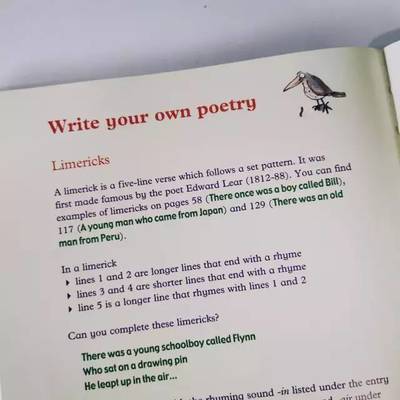 Write your own poetry
Limericks
A limerick is a five-line verse which follows a set pattern. It was
first made famous by the poet Edward Lear (1812-88). You can find
examples of limericks on pages 58 (There once was a boy called Bill),
117 (A young man who came from Japan) and 129 (There was an old
man from Peru).
In a limerick
lines 1 and 2 are longer lines that end with a rhyme
lines 3 and 4 are shorter lines that end with a rhyme
line 5 is a longer line that rhymes with lines 1 and 2
Can you complete these limericks?
There was a young schoolboy called Flynn
Who sat on a drawing pin
He leapt up in the air...
rhyming sound -in listed under the entry
-air under